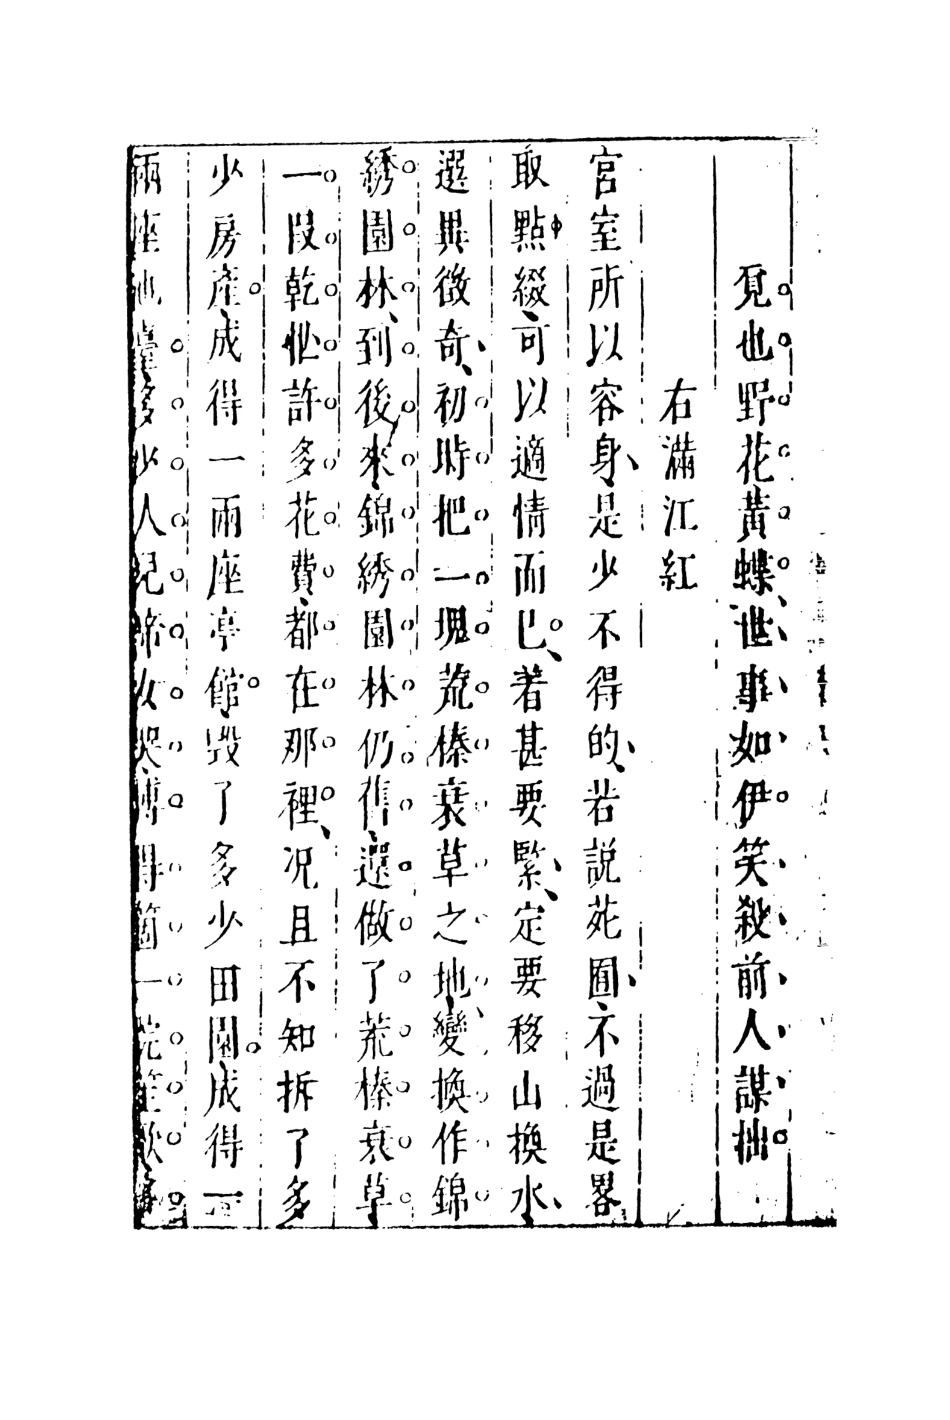 覓也野花黃蝶世事如伊笑殺前人謀拙
右滿江紅
宮室所以容身是少不得的若說苑囿不過是畧
取點綴可以適情而已着甚要緊定要移山換水
選異徵奇初時把一塊荒榛衰草之地變換作錦
綉園林到後來錦綉園林仍舊還做了荒榛衰草
一段乾忙許多花費都在那裡况且不知拆了多
少房產成得一兩座亭館毀了多少田園成得一
兩座池臺多少人兒啼女哭博得箇一院笙歌